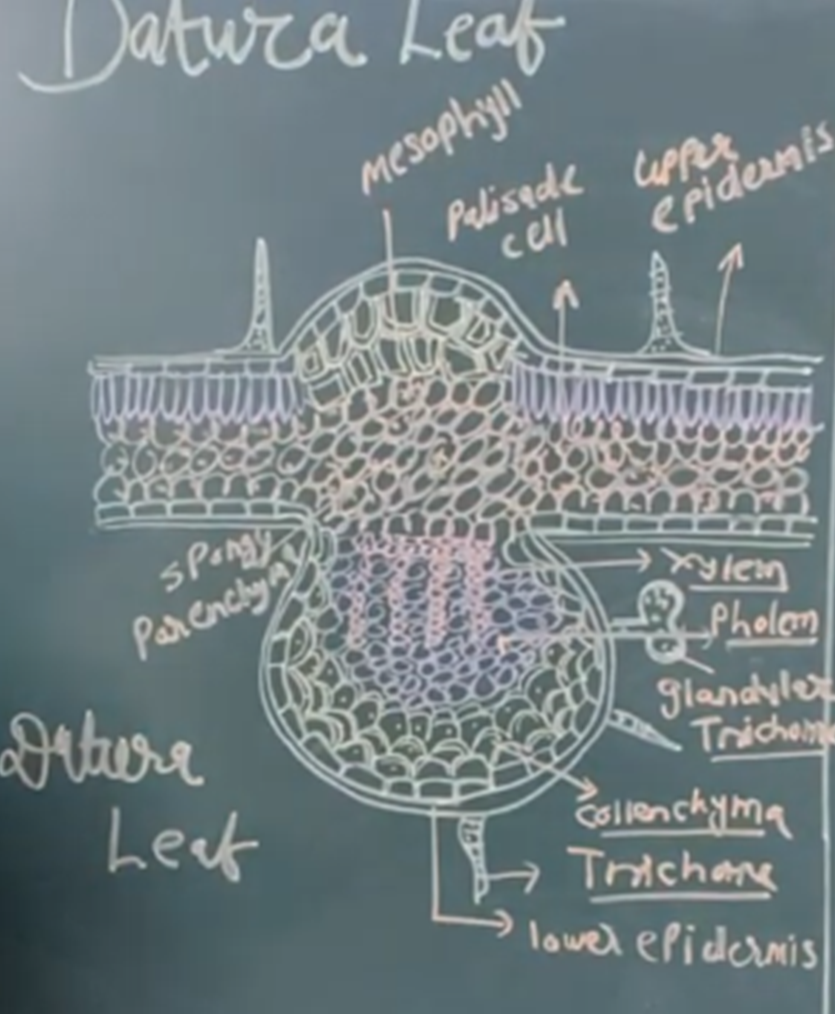 Datura Leaf
mesophyll
Palisade
cell
Upper
epidermis
spongy
Parenchyma
xylem
Pholem
glandular
Trichom
Datura
Leaf
Collenchyma
Trichome
lower epidermis